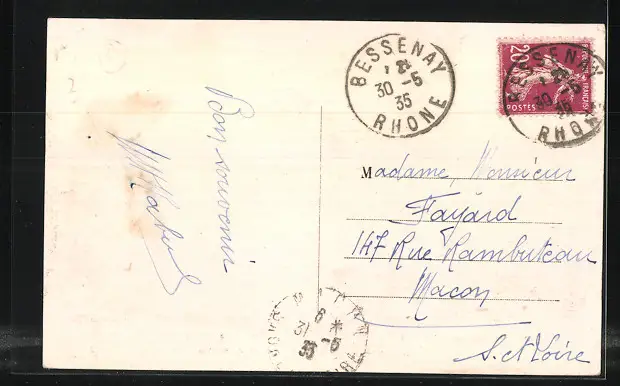 Bon souvenir
BESSENAY
30 -5
35
RHONE
20c
POSTES
BESSENAY
30 -5
35
RHONE
Madame, Monsieur
Fayard
147 Rue Rambuteau
Macon
S. et Loire
6 *
31 -5
35